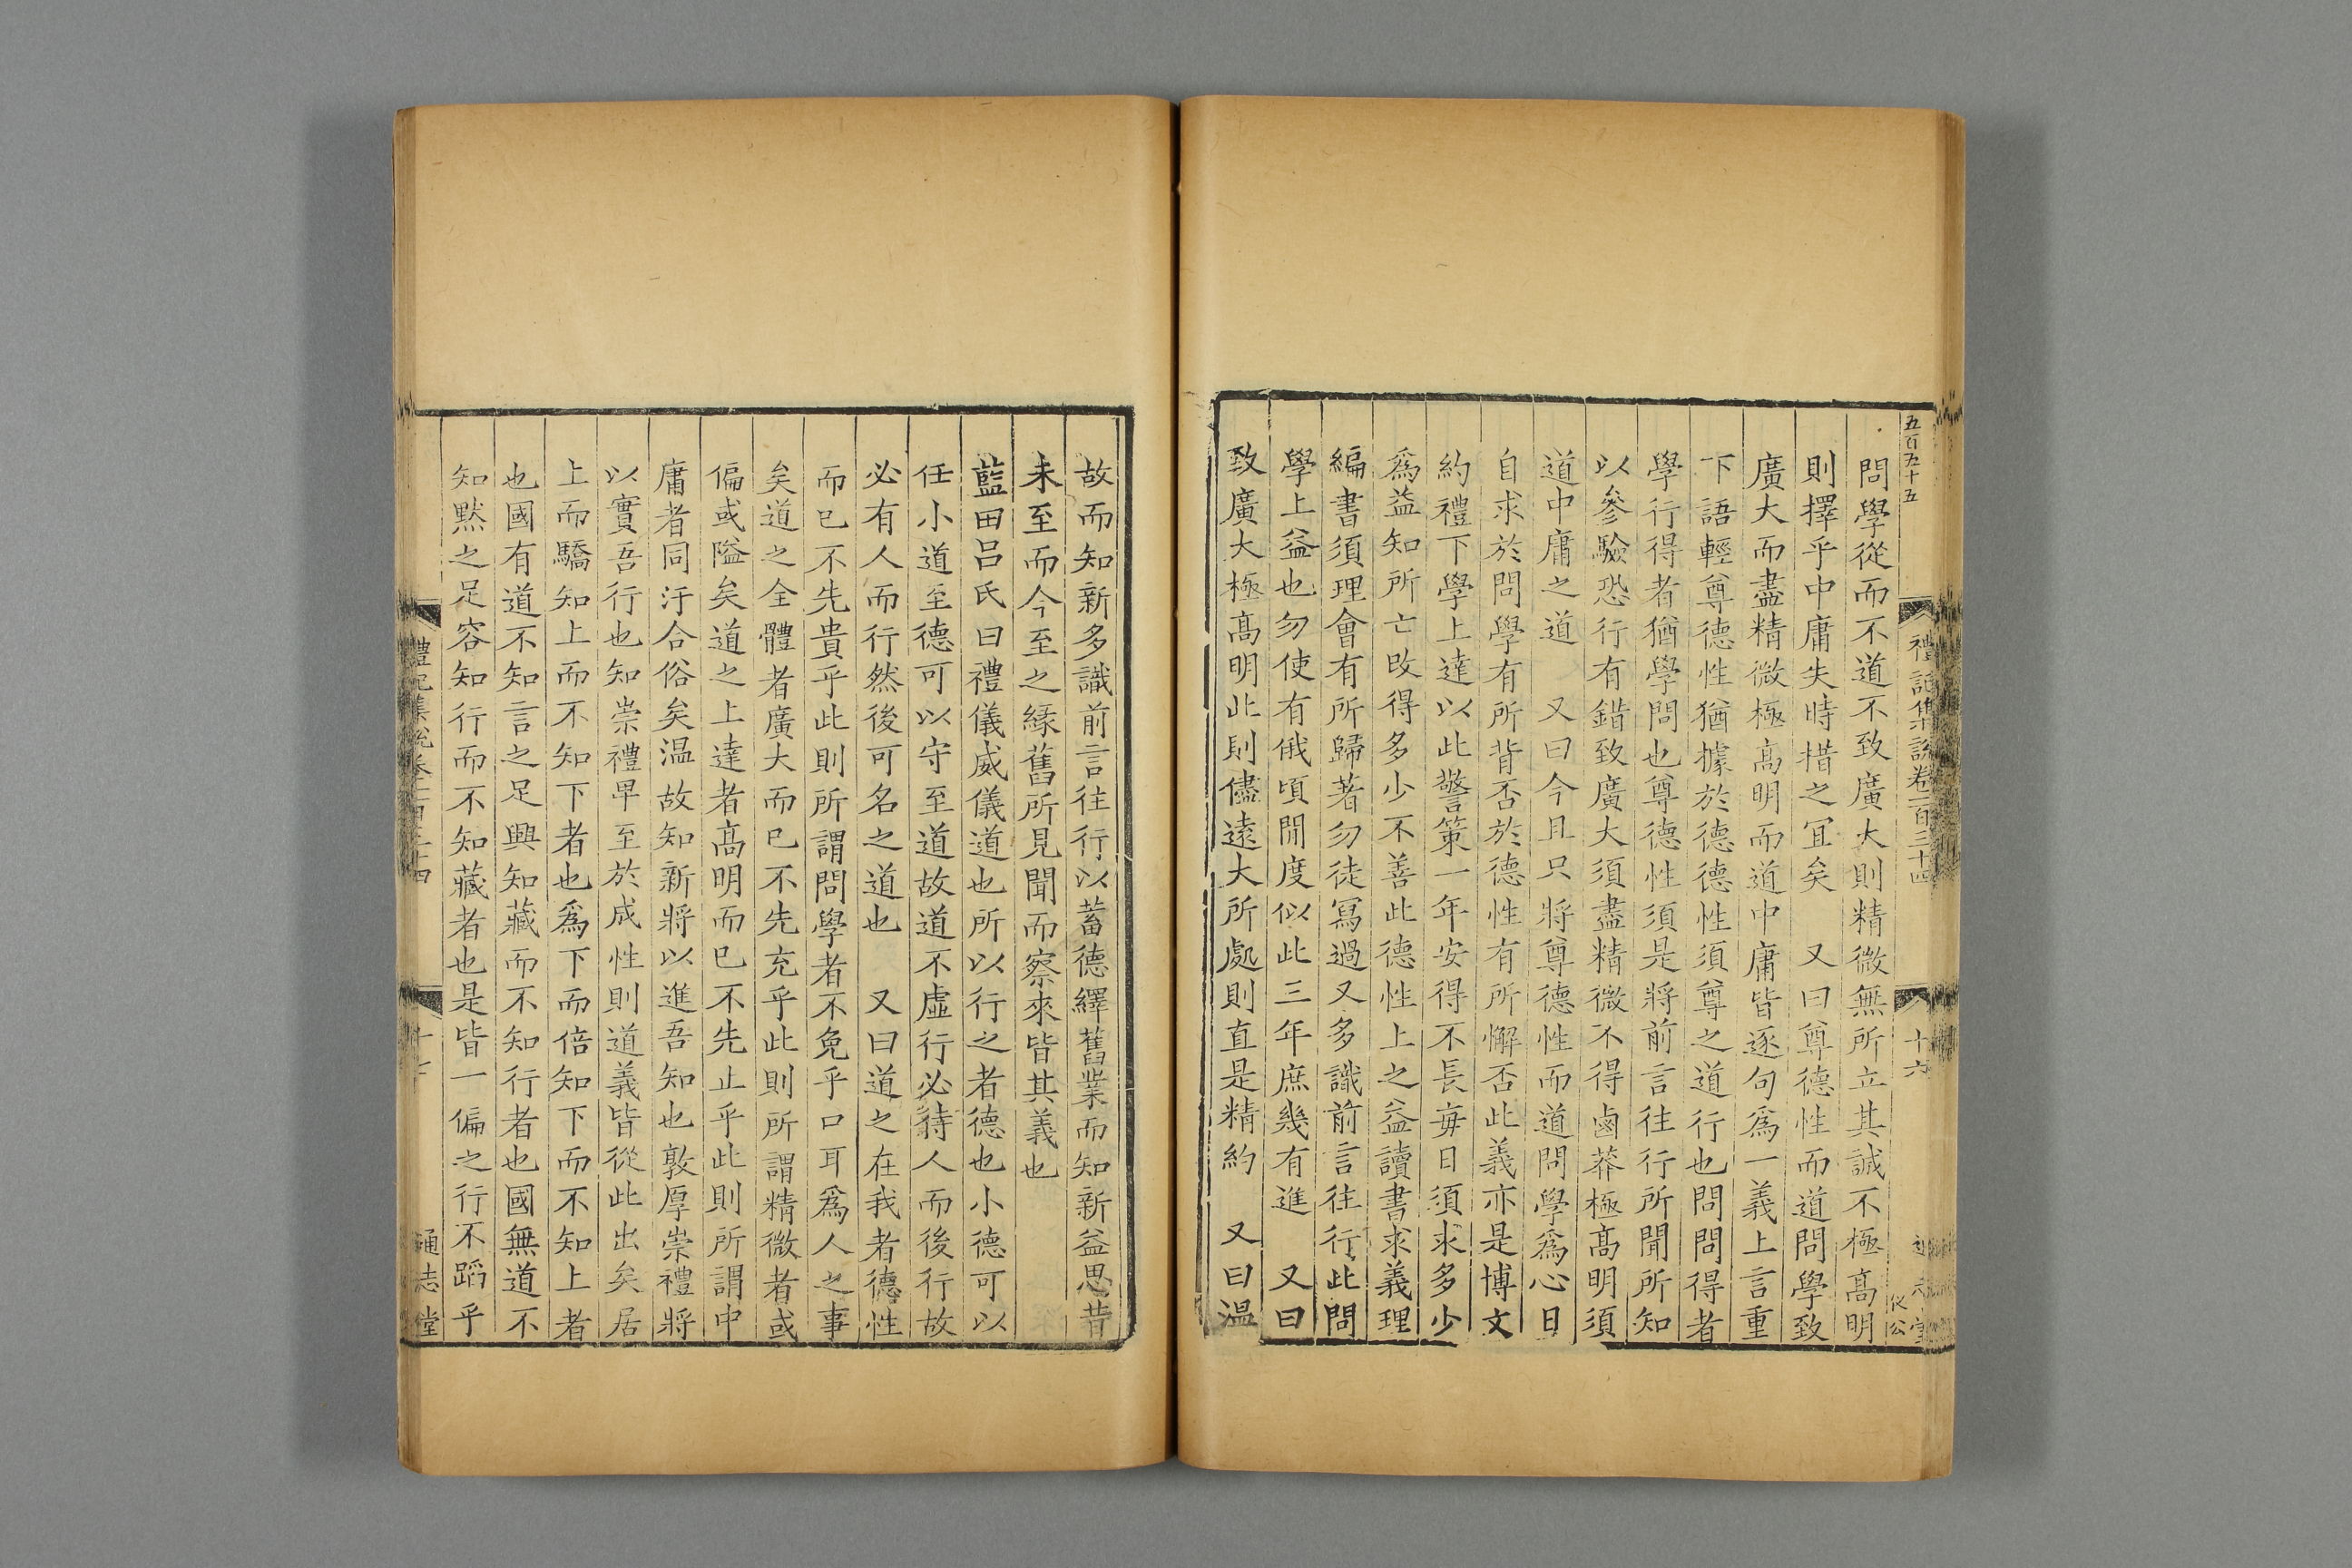 五百五十五
禮記集說卷一百三十四
十六
問學從而不道不致廣大則精微無所立其誠不極髙明
則擇乎中庸失時措之冝矣　又曰尊德性而道問學致
廣大而盡精微極髙明而道中庸皆逐句爲一義上言重
下語輕尊德性猶據於德德性須尊之道行也問問得者
學行得者猶學問也尊德性須是將前言往行所聞所知
以參驗恐行有錯致廣大須盡精微不得鹵莽極髙明須
道中庸之道　又曰今且只將尊德性而道問學爲心日
自求於問學有所背否於德性有所懈否此義亦是博文
約禮下學上達以此警策一年安得不長毎日須求多少
爲益知所亡改得多少不善此德性上之益讀書求義理
編書須理會有所歸著勿徒冩過又多識前言往行此問
學上益也勿使有俄頃閒度似此三年庶幾有進　又曰
致廣大極髙明此則儘遠大所處則直是精約　又曰温
故而知新多識前言往行以蓄德繹舊業而知新益思昔
未至而今至之縁舊所見聞而察來皆其義也
藍田吕氏曰禮儀威儀道也所以行之者德也小德可以
任小道至德可以守至道故道不虛行必待人而後行故
必有人而行然後可名之道也　又曰道之在我者德性
而已不先貴乎此則所謂問學者不免乎口耳爲人之事
矣道之全體者廣大而已不先充乎此則所謂精微者或
偏或隘矣道之上達者髙明而已不先止乎此則所謂中
庸者同汙合俗矣温故知新將以進吾知也敦厚崇禮將
以實吾行也知崇禮卑至於成性則道義皆從此出矣居
上而驕知上而不知下者也爲下而倍知下而不知上者
也國有道不知言之足興知藏而不知行者也國無道不
知黙之足容知行而不知藏者也是皆一偏之行不蹈乎
通志堂